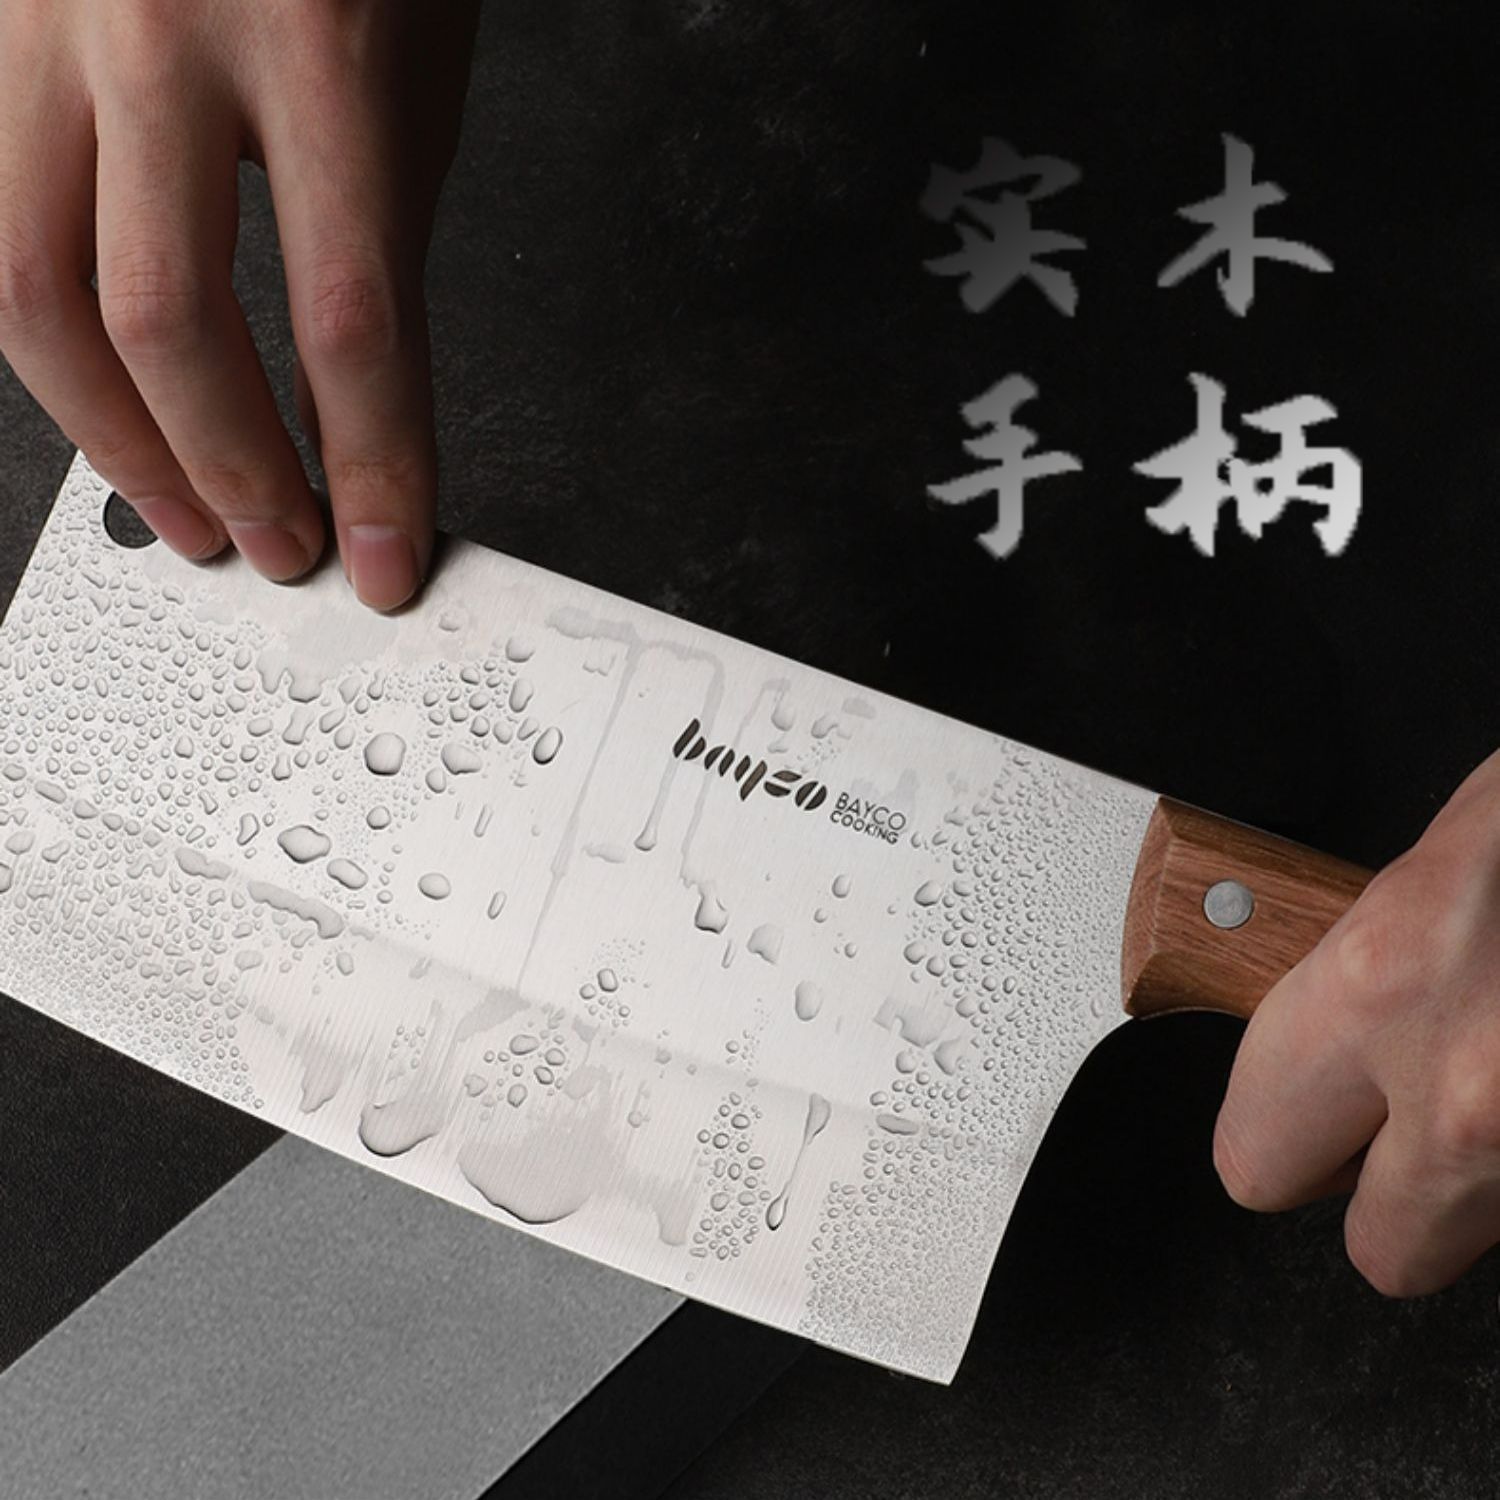 实木
手柄
bayco
BAYCO
COOKING